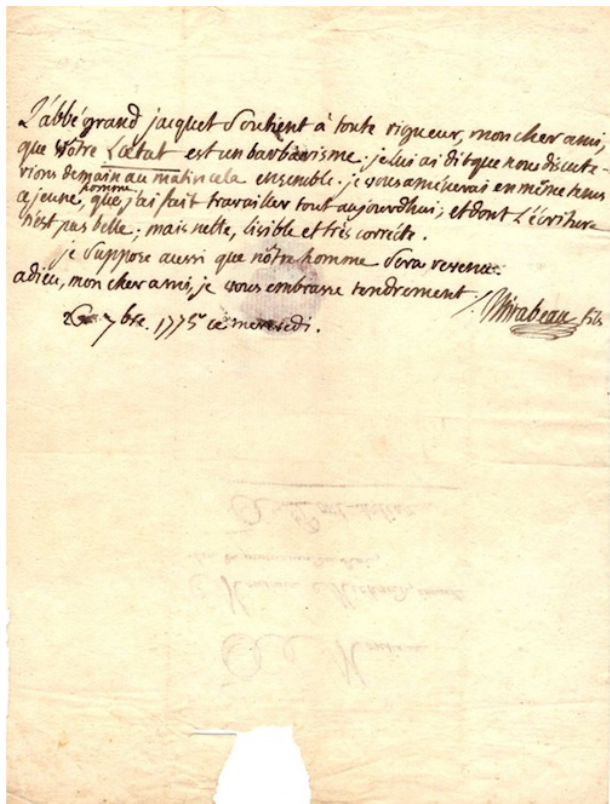 L'abbé grand jacquet Soutient à toute rigueur, mon cher ami,
que vôtre Lætat est un barbarisme. je lui ai dit que nous discute-
rions demain au matin cela ensemble. je vous aménerai en même tems
ce jeune homme, que j'ai fait travailler tout aujourdhui; et dont L'écriture
n'est pas belle; mais nette, lisible et très correcte.
je Suppose aussi que nôtre homme Sera revenu.
adieu, mon cher ami, je vous embrasse tendrement.
Mirabeau fils
7bre. 1775 ce mercredi.